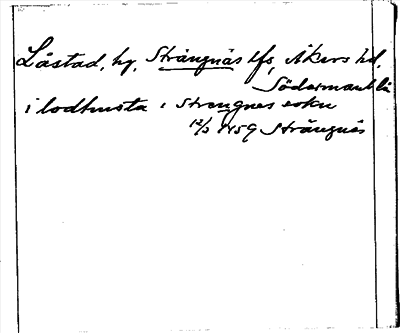 Låstad, by, Strängnäs lfs, Åkers hd,
Södermanl. lä
i lodhusta i Strengnes sokn
12/3 1459 Strängnäs